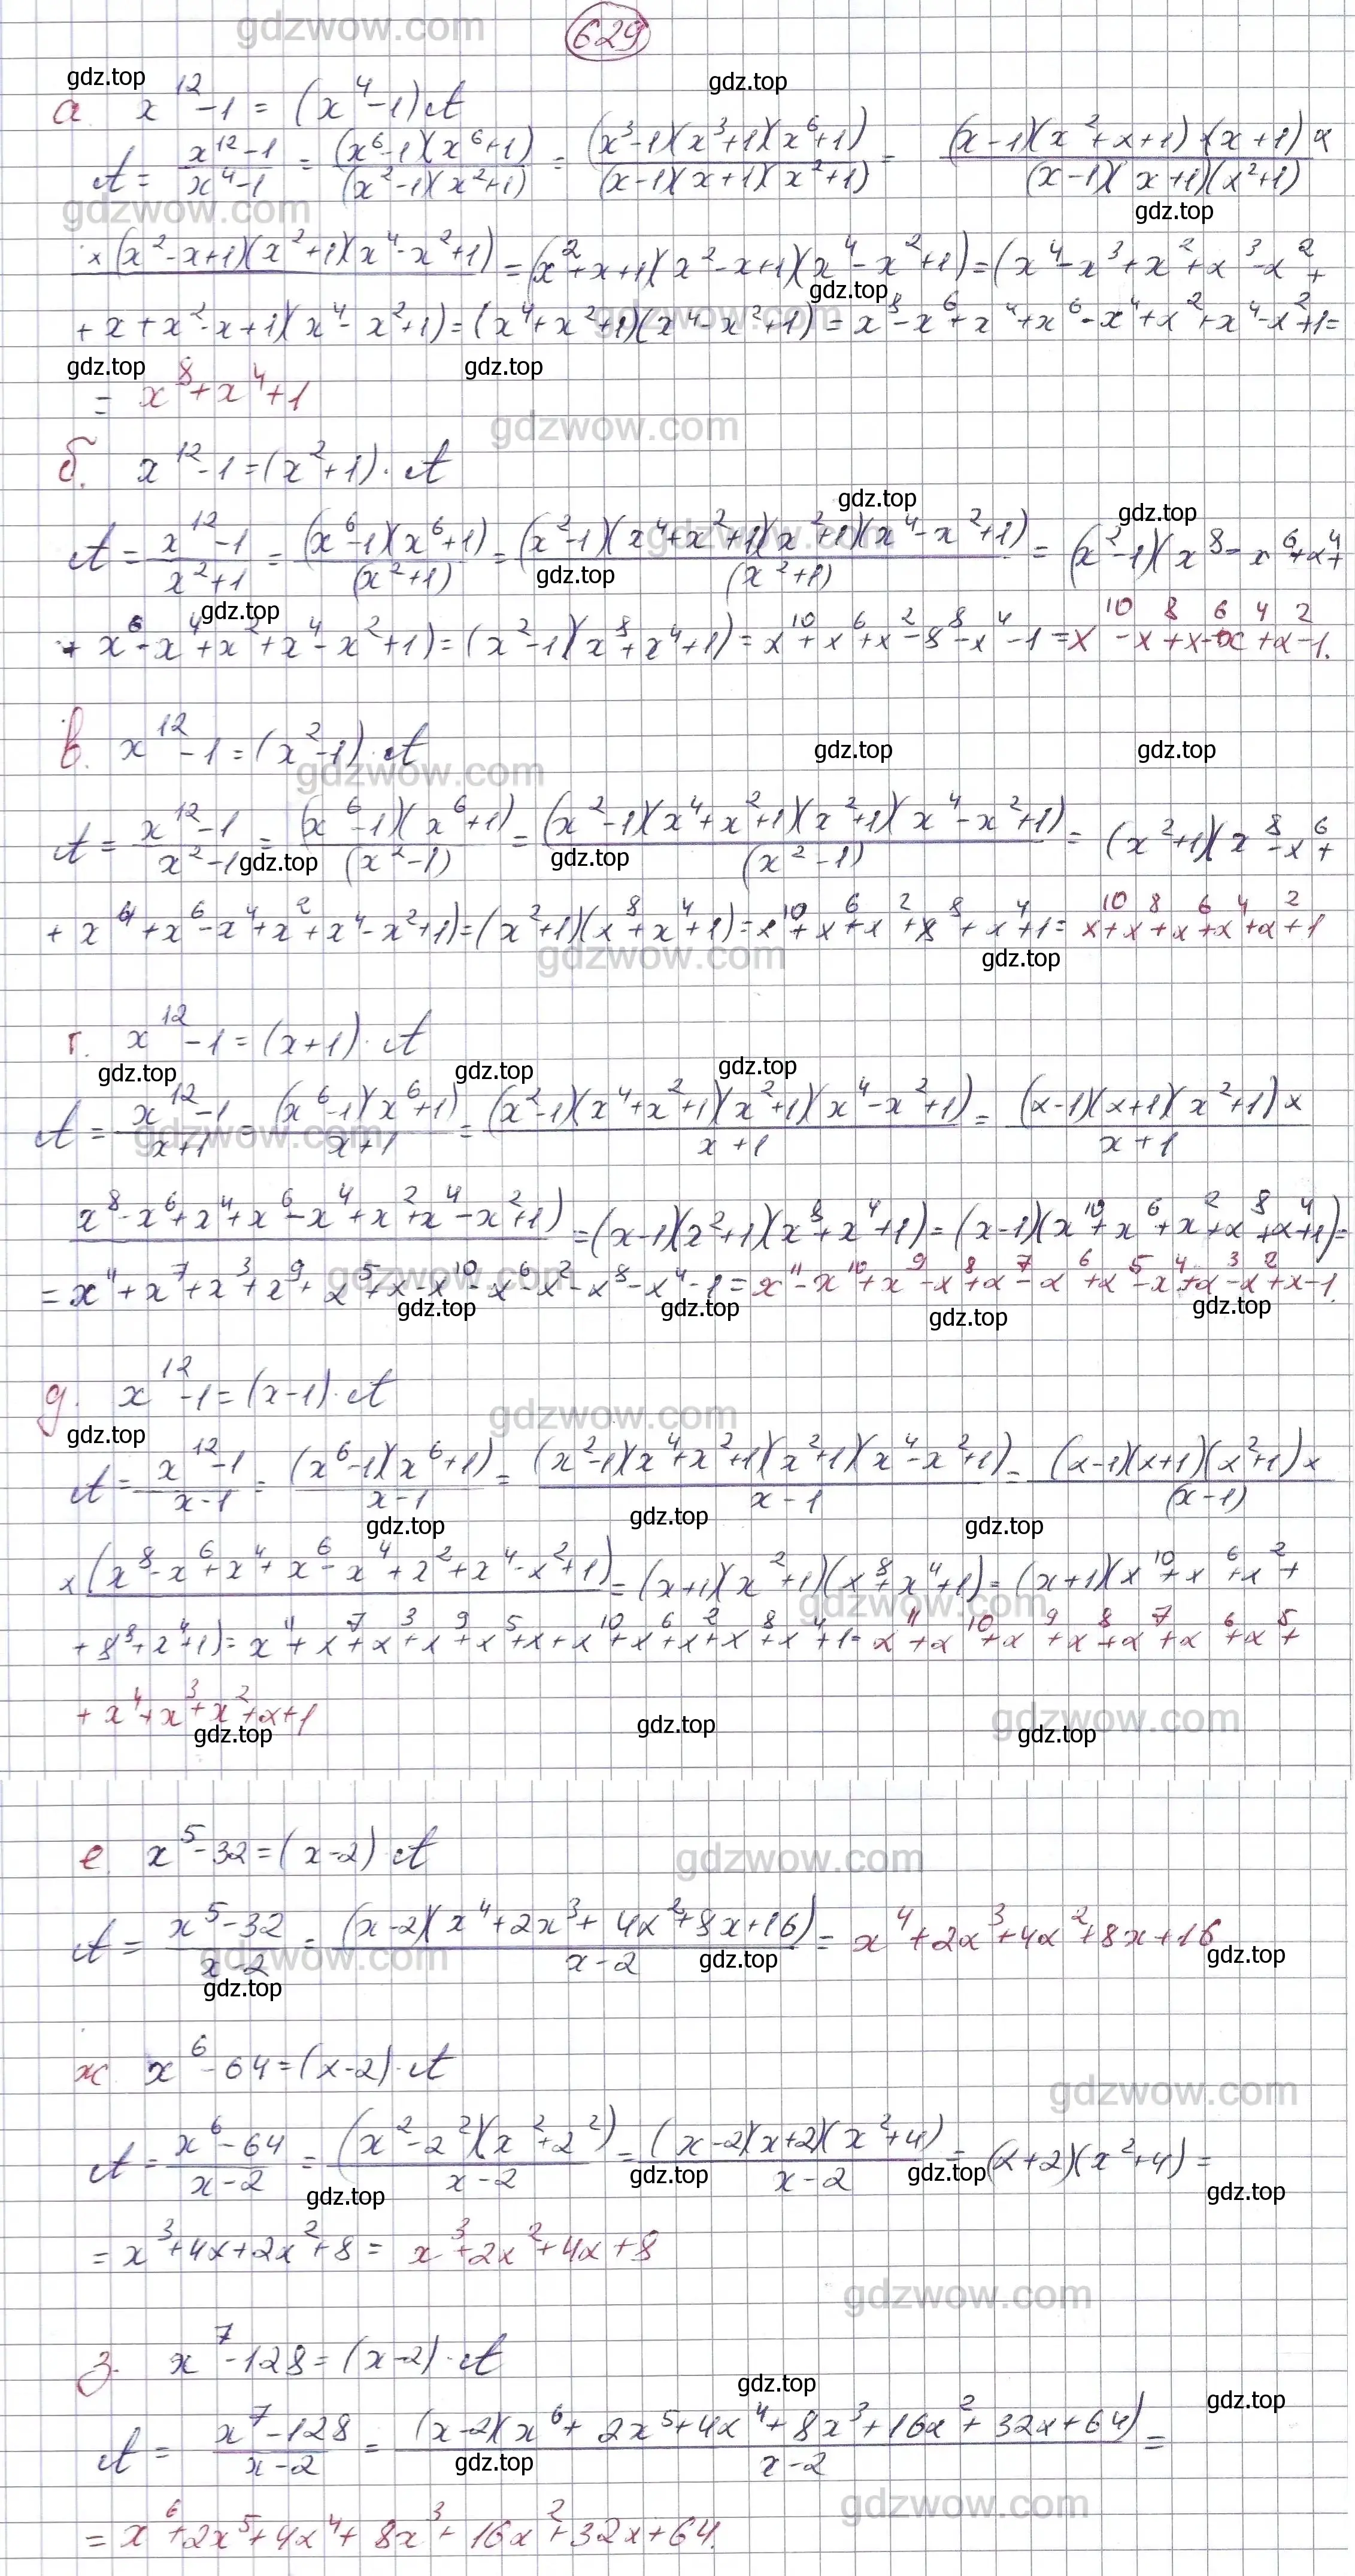 629
а x¹²-1 = (x⁴-1)A
A = (x¹²-1)/(x⁴-1) = ((x⁶-1)(x⁶+1))/((x²-1)(x²+1)) = ((x³-1)(x³+1)(x⁶+1))/((x-1)(x+1)(x²+1)) = ((x-1)(x²+x+1)·(x+1)×)/((x-1)(x+1)(x²+1))
×(x²-x+1)(x²+1)(x⁴-x²+1) = (x²+x+1)(x²-x+1)(x⁴-x²+1) = (x⁴-x³+x²+x³-x²+
+x+x²-x+1)(x⁴-x²+1) = (x⁴+x²+1)(x⁴-x²+1) = x⁸-x⁶+x⁴+x⁶-x⁴+x²+x⁴-x²+1=
= x⁸+x⁴+1
б. x¹²-1=(x²+1)·A
A = (x¹²-1)/(x²+1) = ((x⁶-1)(x⁶+1))/(x²+1) = ((x²-1)(x⁴+x²+1)(x²+1)(x⁴-x²+1))/(x²+1) = (x²-1)(x⁸-x⁶+x⁴+
+x⁶-x⁴+x²+x⁴-x²+1) = (x²-1)(x⁸+x⁴+1) = x¹⁰+x⁶+x²-8⁸-x⁴-1 = x¹⁰-x⁸+x⁶-x⁴+x²-1.
в. x¹²-1=(x²-1)·A
A = (x¹²-1)/(x²-1) = ((x⁶-1)(x⁶+1))/(x²-1) = ((x²-1)(x⁴+x²+1)(x²+1)(x⁴-x²+1))/(x²-1) = (x²+1)(x⁸-x⁶+
+x⁴+x⁶-x⁴+x²+x⁴-x²+1) = (x²+1)(x⁸+x⁴+1) = x¹⁰+x⁶+x²+x⁸+x⁴+1 = x¹⁰+x⁸+x⁶+x⁴+x²+1
г. x¹²-1=(x+1)·A
A = (x¹²-1)/(x+1) = ((x⁶-1)(x⁶+1))/(x+1) = ((x²-1)(x⁴+x²+1)(x²+1)(x⁴-x²+1))/(x+1) = ((x-1)(x+1)(x²+1)×)/(x+1)
x⁸-x⁶+x⁴+x⁶-x⁴+x²+x⁴-x²+1) = (x-1)(x²+1)(x⁸+x⁴+1) = (x-1)(x¹⁰+x⁶+x²+x⁸+x⁴+1)=
= x¹¹+x⁷+x³+x⁹+x⁵+x-x¹⁰-x⁶-x²-x⁸-x⁴-1 = x¹¹-x¹⁰+x⁹-x⁸+x⁷-x⁶+x⁵-x⁴+x³-x²+x-1.
д. x¹²-1=(x-1)·A
A = (x¹²-1)/(x-1) = ((x⁶-1)(x⁶+1))/(x-1) = ((x²-1)(x⁴+x²+1)(x²+1)(x⁴-x²+1))/(x-1) = ((x-1)(x+1)(x²+1)×)/(x-1)
×(x⁸-x⁶+x⁴+x⁶-x⁴+x²+x⁴-x²+1) = (x+1)(x²+1)(x⁸+x⁴+1) = (x+1)(x¹⁰+x⁶+x²+
+8⁸+x⁴+1) = x¹¹+x⁷+x³+x⁹+x⁵+x+x¹⁰+x⁶+x²+x⁸+x⁴+1 = x¹¹+x¹⁰+x⁹+x⁸+x⁷+x⁶+x⁵+
+x⁴+x³+x²+x+1
е. x⁵-32=(x-2)·A
A = (x⁵-32)/(x-2) = ((x-2)(x⁴+2x³+4x²+8x+16))/(x-2) = x⁴+2x³+4x²+8x+16
ж x⁶-64=(x-2)·A
A = (x⁶-64)/(x-2) = ((x²-2²)(x²+2²))/(x-2) = ((x-2)(x+2)(x²+4))/(x-2) = (x+2)(x²+4) =
= x³+4x+2x²+8 = x³+2x²+4x+8
з. x⁷-128=(x-2)·A
A = (x⁷-128)/(x-2) = ((x-2)(x⁶+2x⁵+4x⁴+8x³+16x²+32x+64))/(x-2) =
= x⁶+2x⁵+4x⁴+8x³+16x²+32x+64.